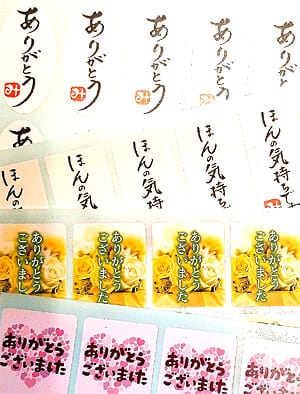 ありがとう
み
ありがとう
み
ありがとう
み
ありがとう
み
ありがと
み
あり
ほんの気
ほんの気
ほんの気持ち
ほんの気持ち
ほんの気持ちで
ありがとう
ございました
ありがとう
ございました
ありがとう
ございました
ありがとう
ございました
ありがとう
ございました
ありがとう
ございました
ありがとう
ございました
ありがとう
ございました